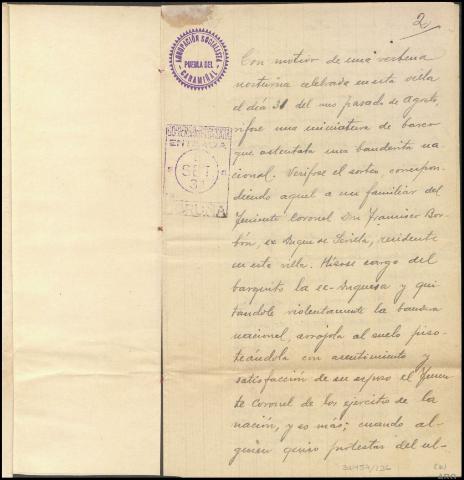 2
AGRUPACIÓN SOCIALISTA
PUEBLA DEL
CARAMIÑAL
ENTRADA
SET
31
Con motivo de una verbena
nocturna celebrada en esta villa
el día 31 del mes pasado de agosto,
rifose una miniatura de barco
que ostentaba una banderita na-
cional. Verifose el sorteo, correspon-
diendo aquel a un familiar del
Teniente Coronel Don Francisco Bor-
bón, ex Duque de Sevilla, residente
en esta villa. Hizose cargo del
barquito la ex-Duquesa y qui-
tándole violentamente la bandera
nacional, arrojola al suelo piso-
teándola con asentimiento y
satisfacción de su esposo el Tenien-
te Coronel de los ejercito de la
nación, y es más; cuando al-
guien quiso protestar del ul-